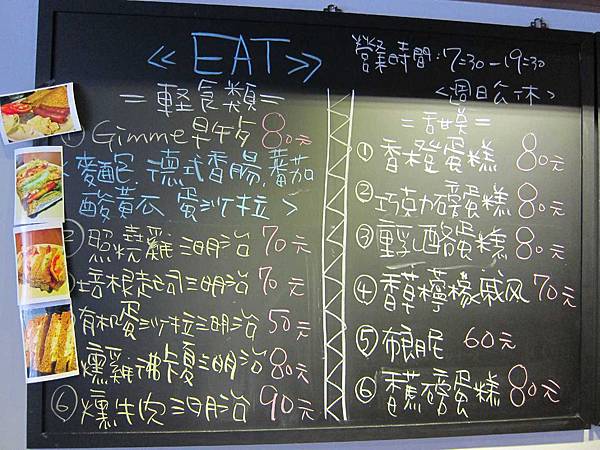 ≪ EAT ≫
=軽食類=
① Gimme早午夕 80元
<麥酏 德式香腸,蕃茄
酸黃瓜 蛋沙拉>
照燒雞三明治 70元
培根起司三明治 70元
有机蛋沙拉三明治 50元
燻雞沸頗三明治 80元
⑥燻牛肉三明治 90元
營業時間:7:30-19:30
<週日公休>
=甜美=
①香橙蛋糕 80元
②巧克力磅蛋糕 80元
③重乳酪蛋糕 80元
④香草檸檬戚风 70元
⑤布朗尼 60元
⑥香蕉磅蛋糕 80元